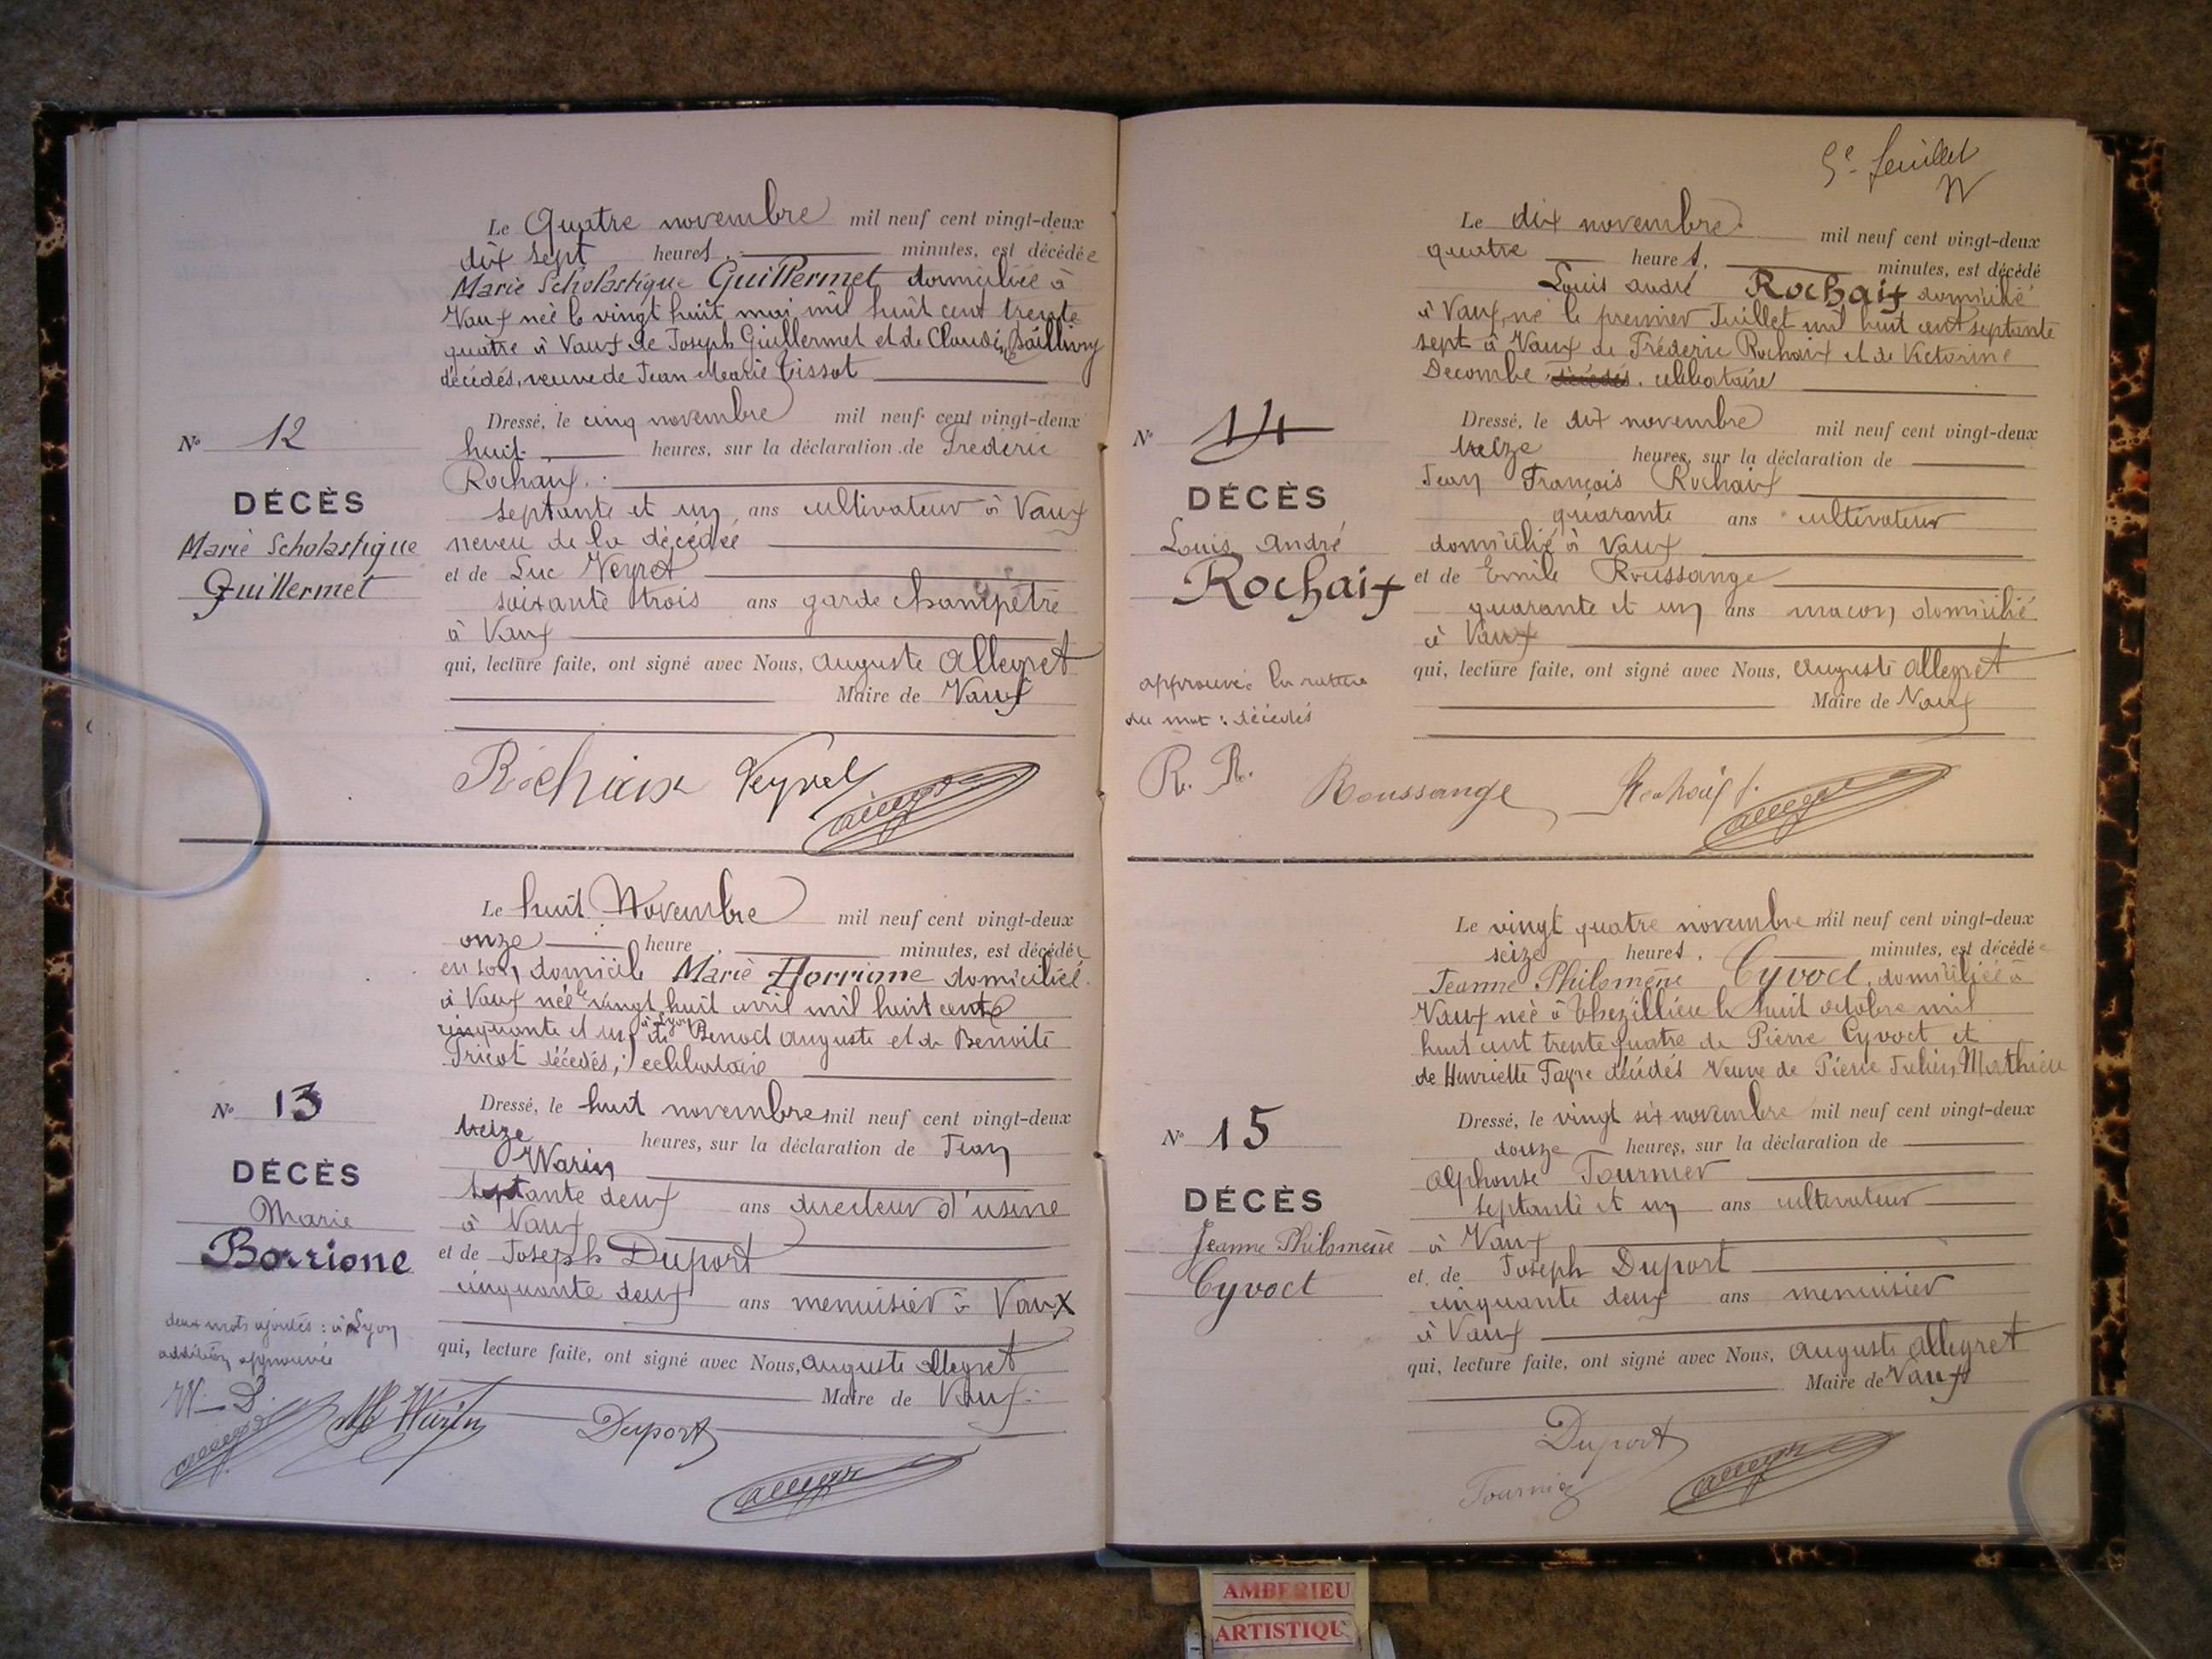 Le Quatre novembre mil neuf cent vingt-deux
dix sept heures, minutes, est décédée
Marie Scholastique Guillermet domiciliée à
Vaux née le vingt huit mai mil huit cent trente
quatre à Vaux de Joseph Guillermet et de Claudine
décédés, veuve de Jean Marie Tissot
Dressé, le cinq novembre mil neuf cent vingt-deux
huit heures, sur la déclaration de Frédéric
Rochaix
septante et un ans cultivateur à Vaux
neveu de la décédée
et de Luc Veyret
soixante trois ans garde champêtre
à Vaux
qui, lecture faite, ont signé avec Nous, Auguste Allegret
Maire de Vaux
N° 12
DÉCÈS
Marie Scholastique
Guillermet
Rochaix Veyret
Le huit Novembre mil neuf cent vingt-deux
onze heure, minutes, est décédée
en son domicile Marie domiciliée
à Vaux née le vingt huit avril mil huit cent
cinquante et un à Lyon de Benoit Auguste et de Benoite
Tricot décédés, célibataire
Dressé, le huit novembre mil neuf cent vingt-deux
treize heures, sur la déclaration de Jean
Warin
septante deux ans directeur d'usine
à Vaux
et de Joseph Duport
cinquante deux ans menuisier à Vaux
qui, lecture faite, ont signé avec Nous, Auguste Allegret
Maire de Vaux
N° 13
DÉCÈS
Marie
Borrione
deux mots ajoutés : à Lyon
addition approuvée
W. D.
Warin Duport
5e feuillet
Le dix novembre mil neuf cent vingt-deux
quatre heures, minutes, est décédé
Louis André Rochaix domicilié
à Vaux, né le premier Juillet mil huit cent septante
sept à Vaux de Fréderic Rochaix et de Victorine
Decombe décédés. célibataire
Dressé, le dix novembre mil neuf cent vingt-deux
treize heures, sur la déclaration de
Jean François Rochaix
quarante ans cultivateur
domicilié à Vaux
et de Emile Roussange
quarante et un ans maçon domicilié
à Vaux
qui, lecture faite, ont signé avec Nous, Auguste Allegret
Maire de Vaux
N° 14
DÉCÈS
Louis André
Rochaix
approuvé la rature
du mot : décédés
R. R.
Roussange Rochaix
Le vingt quatre novembre mil neuf cent vingt-deux
seize heures, minutes, est décédée
Jeanne Philomène Cyvoct, domiciliée à
Vaux née à Thezillieu le huit octobre mil
huit cent trente quatre de Pierre Cyvoct et
de Henriette Fayre décédés Veuve de Pierre Julien Mathieu
Dressé, le vingt six novembre mil neuf cent vingt-deux
douze heures, sur la déclaration de
Alphonse Tournier
septante et un ans cultivateur
à Vaux
et de Joseph Duport
cinquante deux ans menuisier
à Vaux
qui, lecture faite, ont signé avec Nous, Auguste Allegret
Maire de Vaux
N° 15
DÉCÈS
Jeanne Philomène
Cyvoct
Duport
Tournier
AMBERIEU
ARTISTIQU